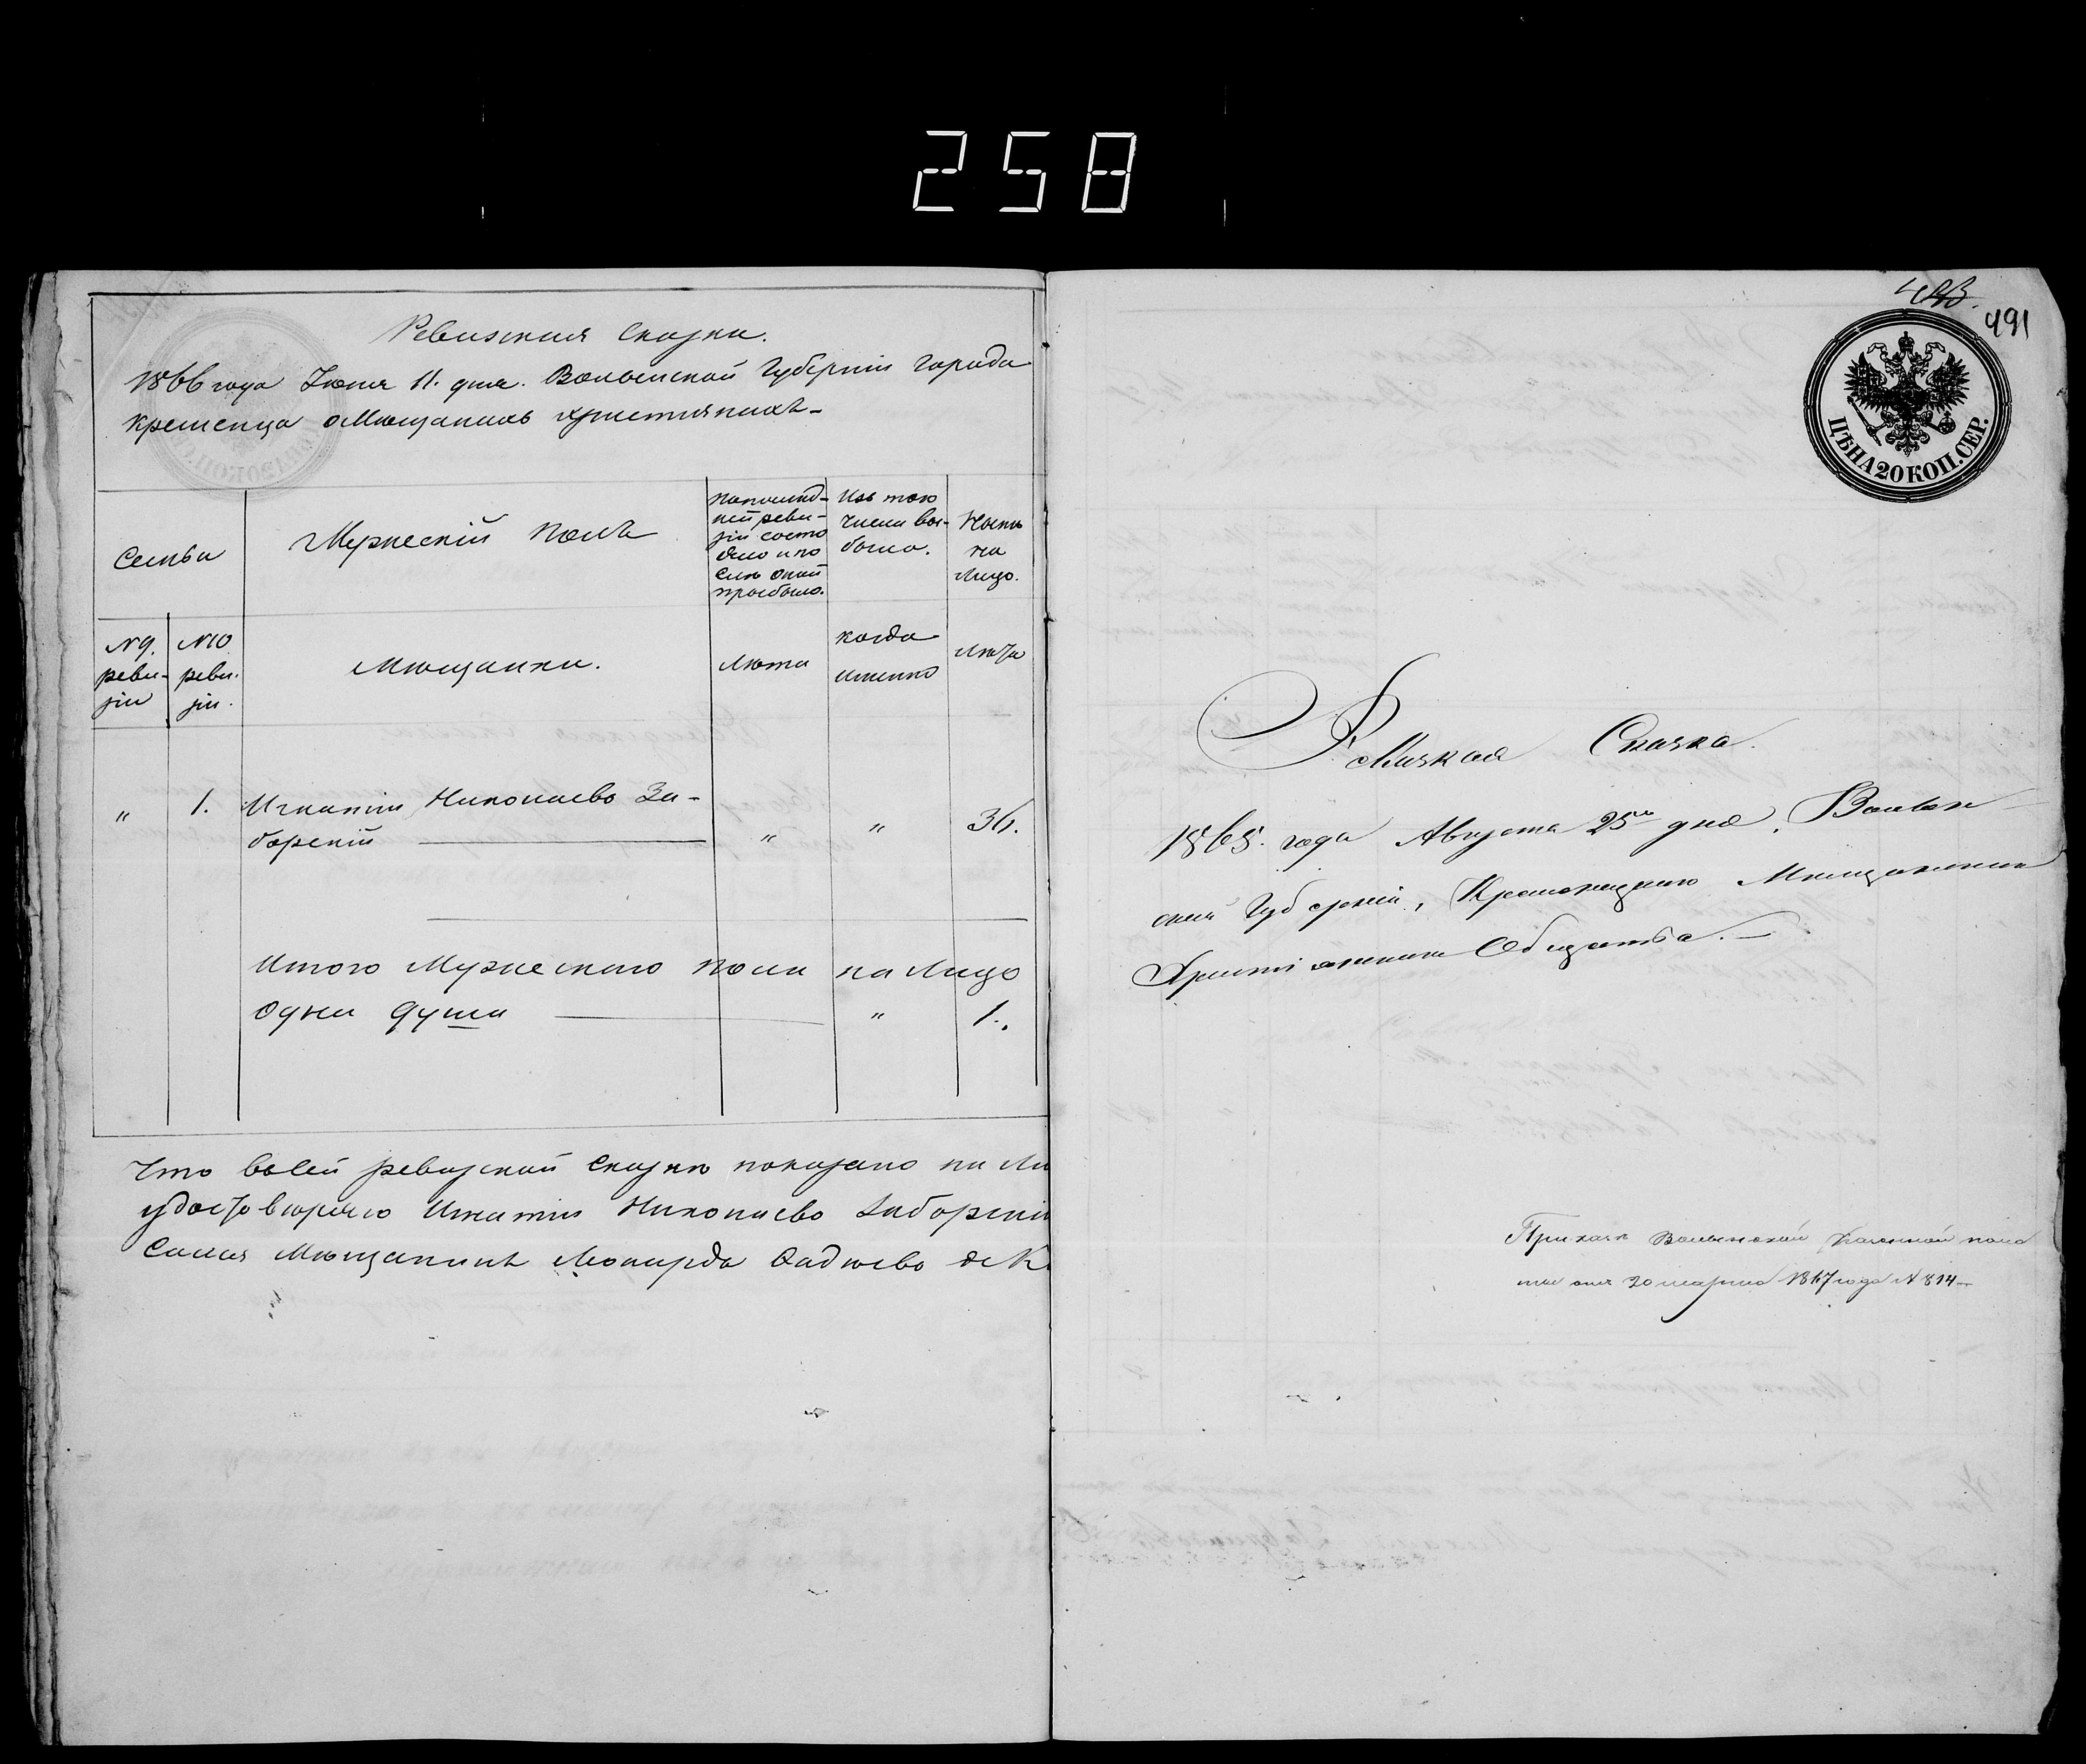 258
Ревизкия Сказки.
1866 года Іюня 11. дня. Волынской Губерніи города
Кременца о Мѣщанахъ християнахъ-
Семьи
Мужескій полъ
По послѣд-
ней реви-
зіи состо
яло и по
слѣ оной
прибыло.
Изъ того
числа вы-
было.
Нынѣ
на
лицо.
№ 9.
реви-
зіи
№ 10
реви-
зіи.
Мѣщанки.
Лѣта
когда
именно
Лѣта
"
1.
Игнатій Николаевъ За-
борскій
"
"
36.
Итого Мужескаго пола на лицо
одна душа
"
1.
Что въ сей ревизской сказкѣ показано на ли
удостовѣряю Игнатій Николаевъ Заборскій
Мѣщанинъ
491
ЦѢНА 20 КОП. СЕР.
Ревизкая Сказка.
1865. года Августа 25го дня, Волын-
ской Губерніи, Кременецкаго Мѣщанскаго
Христіанскаго Общества.-
Приказъ Волынской Казенной пала
ты отъ 20 марта 1867 года № 814-